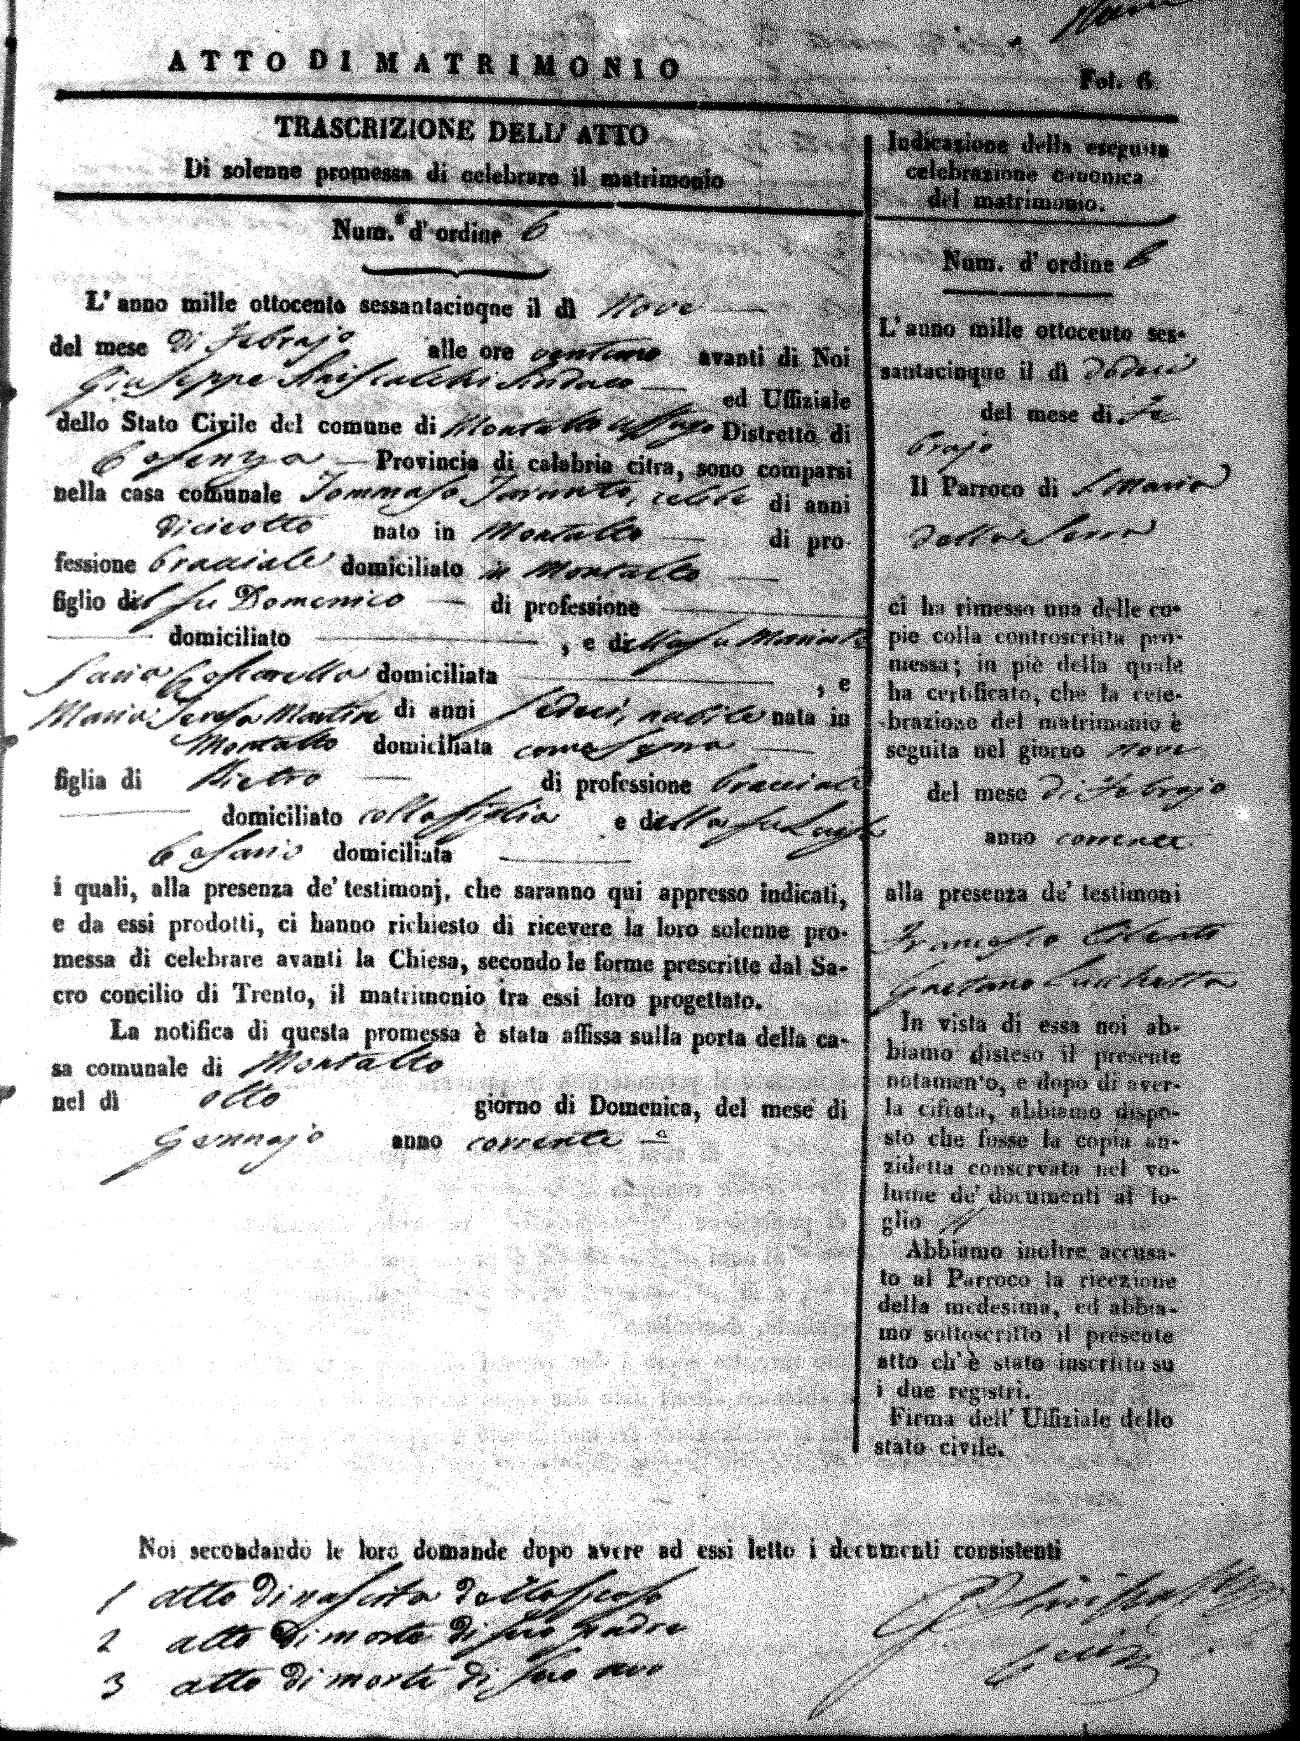 ATTO DI MATRIMONIO
Fol. 6
TRASCRIZIONE DELL' ATTO
Di solenne promessa di celebrare il matrimonio
Num.° d' ordine 6
L' anno mille ottocento sessantacinque il dì Nove
del mese di Febrajo alle ore ventuno avanti di Noi
Giuseppe Siniscalchi Sindaco ed Uffiziale
dello Stato Civile del comune di Montalto Uffugo Distretto di
Cosenza Provincia di calabria citra, sono comparsi
nella casa comunale Tommaso Taranto, celibe di anni
diciotto nato in Montalto di pro-
fessione bracciale domiciliato in Montalto
figlio del fu Domenico di professione
domiciliato , e della fu Maria Ro
saria domiciliata , e
Maria Teresa Martire di anni sedeci, nubile nata in
Montalto domiciliata come sopra
figlia di Pietro di professione bracciale
domiciliato colla figlia e della fu
Cesario domiciliata
i quali, alla presenza de' testimonj, che saranno qui appresso indicati,
e da essi prodotti, ci hanno richiesto di ricevere la loro solenne pro-
messa di celebrare avanti la Chiesa, secondo le forme prescritte dal Sa-
cro concilio di Trento, il matrimonio tra essi loro progettato.
La notifica di questa promessa è stata affissa sulla porta della ca-
sa comunale di Montalto
nel dì otto giorno di Domenica, del mese di
Gennajo anno corrente
Noi secondando le loro domande dopo avere ad essi letto i documenti consistenti
1 atto di nascita dello sposo
2 atto di morte di suo padre
3 atto di morte di suo avo
Indicazione della eseguita
celebrazione canonica
del matrimonio.
Num. d' ordine 6
L' anno mille ottocento ses-
santacinque il dì dodeci
del mese di Fe
brajo
Il Parroco di S. Maria
della Serra
ci ha rimesso una delle co-
pie colla controscritta pro-
messa; in piè della quale
ha certificato, che la cele-
brazione del matrimonio è
seguita nel giorno nove
del mese di Febrajo
anno corrente
alla presenza de' testimoni
Francesco Cilento
Gaetano
In vista di essa noi ab-
biamo disteso il presente
notamento, e dopo di aver-
la cifrata, abbiamo dispo-
sto che fosse la copia an-
zidetta conservata nel vo-
lume de' documenti al fo-
glio
Abbiamo inoltre accusa-
to al Parroco la ricezione
della medesima, ed abbia-
mo sottoscritto il presente
atto ch' è stato inscritto su
i due registri.
Firma dell' Uffiziale dello
stato civile.